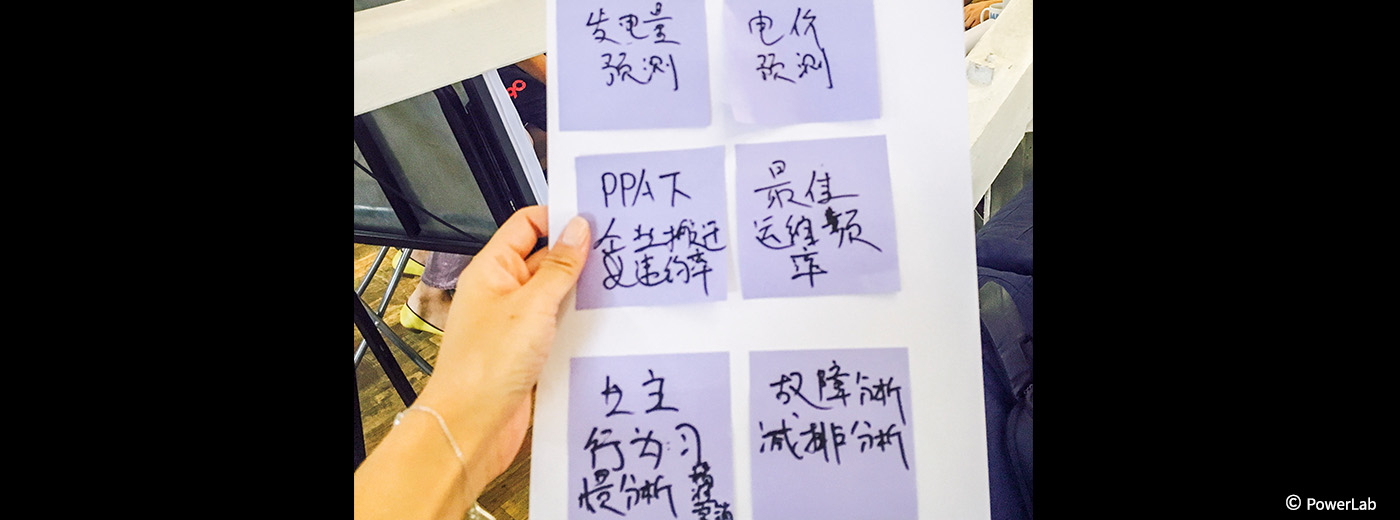 发电量
预测
电价
预测
PPA下
企业搬迁
及违约率
最佳
运维频
率
业主
行为习
惯分析
故障分析
减排分析
go
© PowerLab